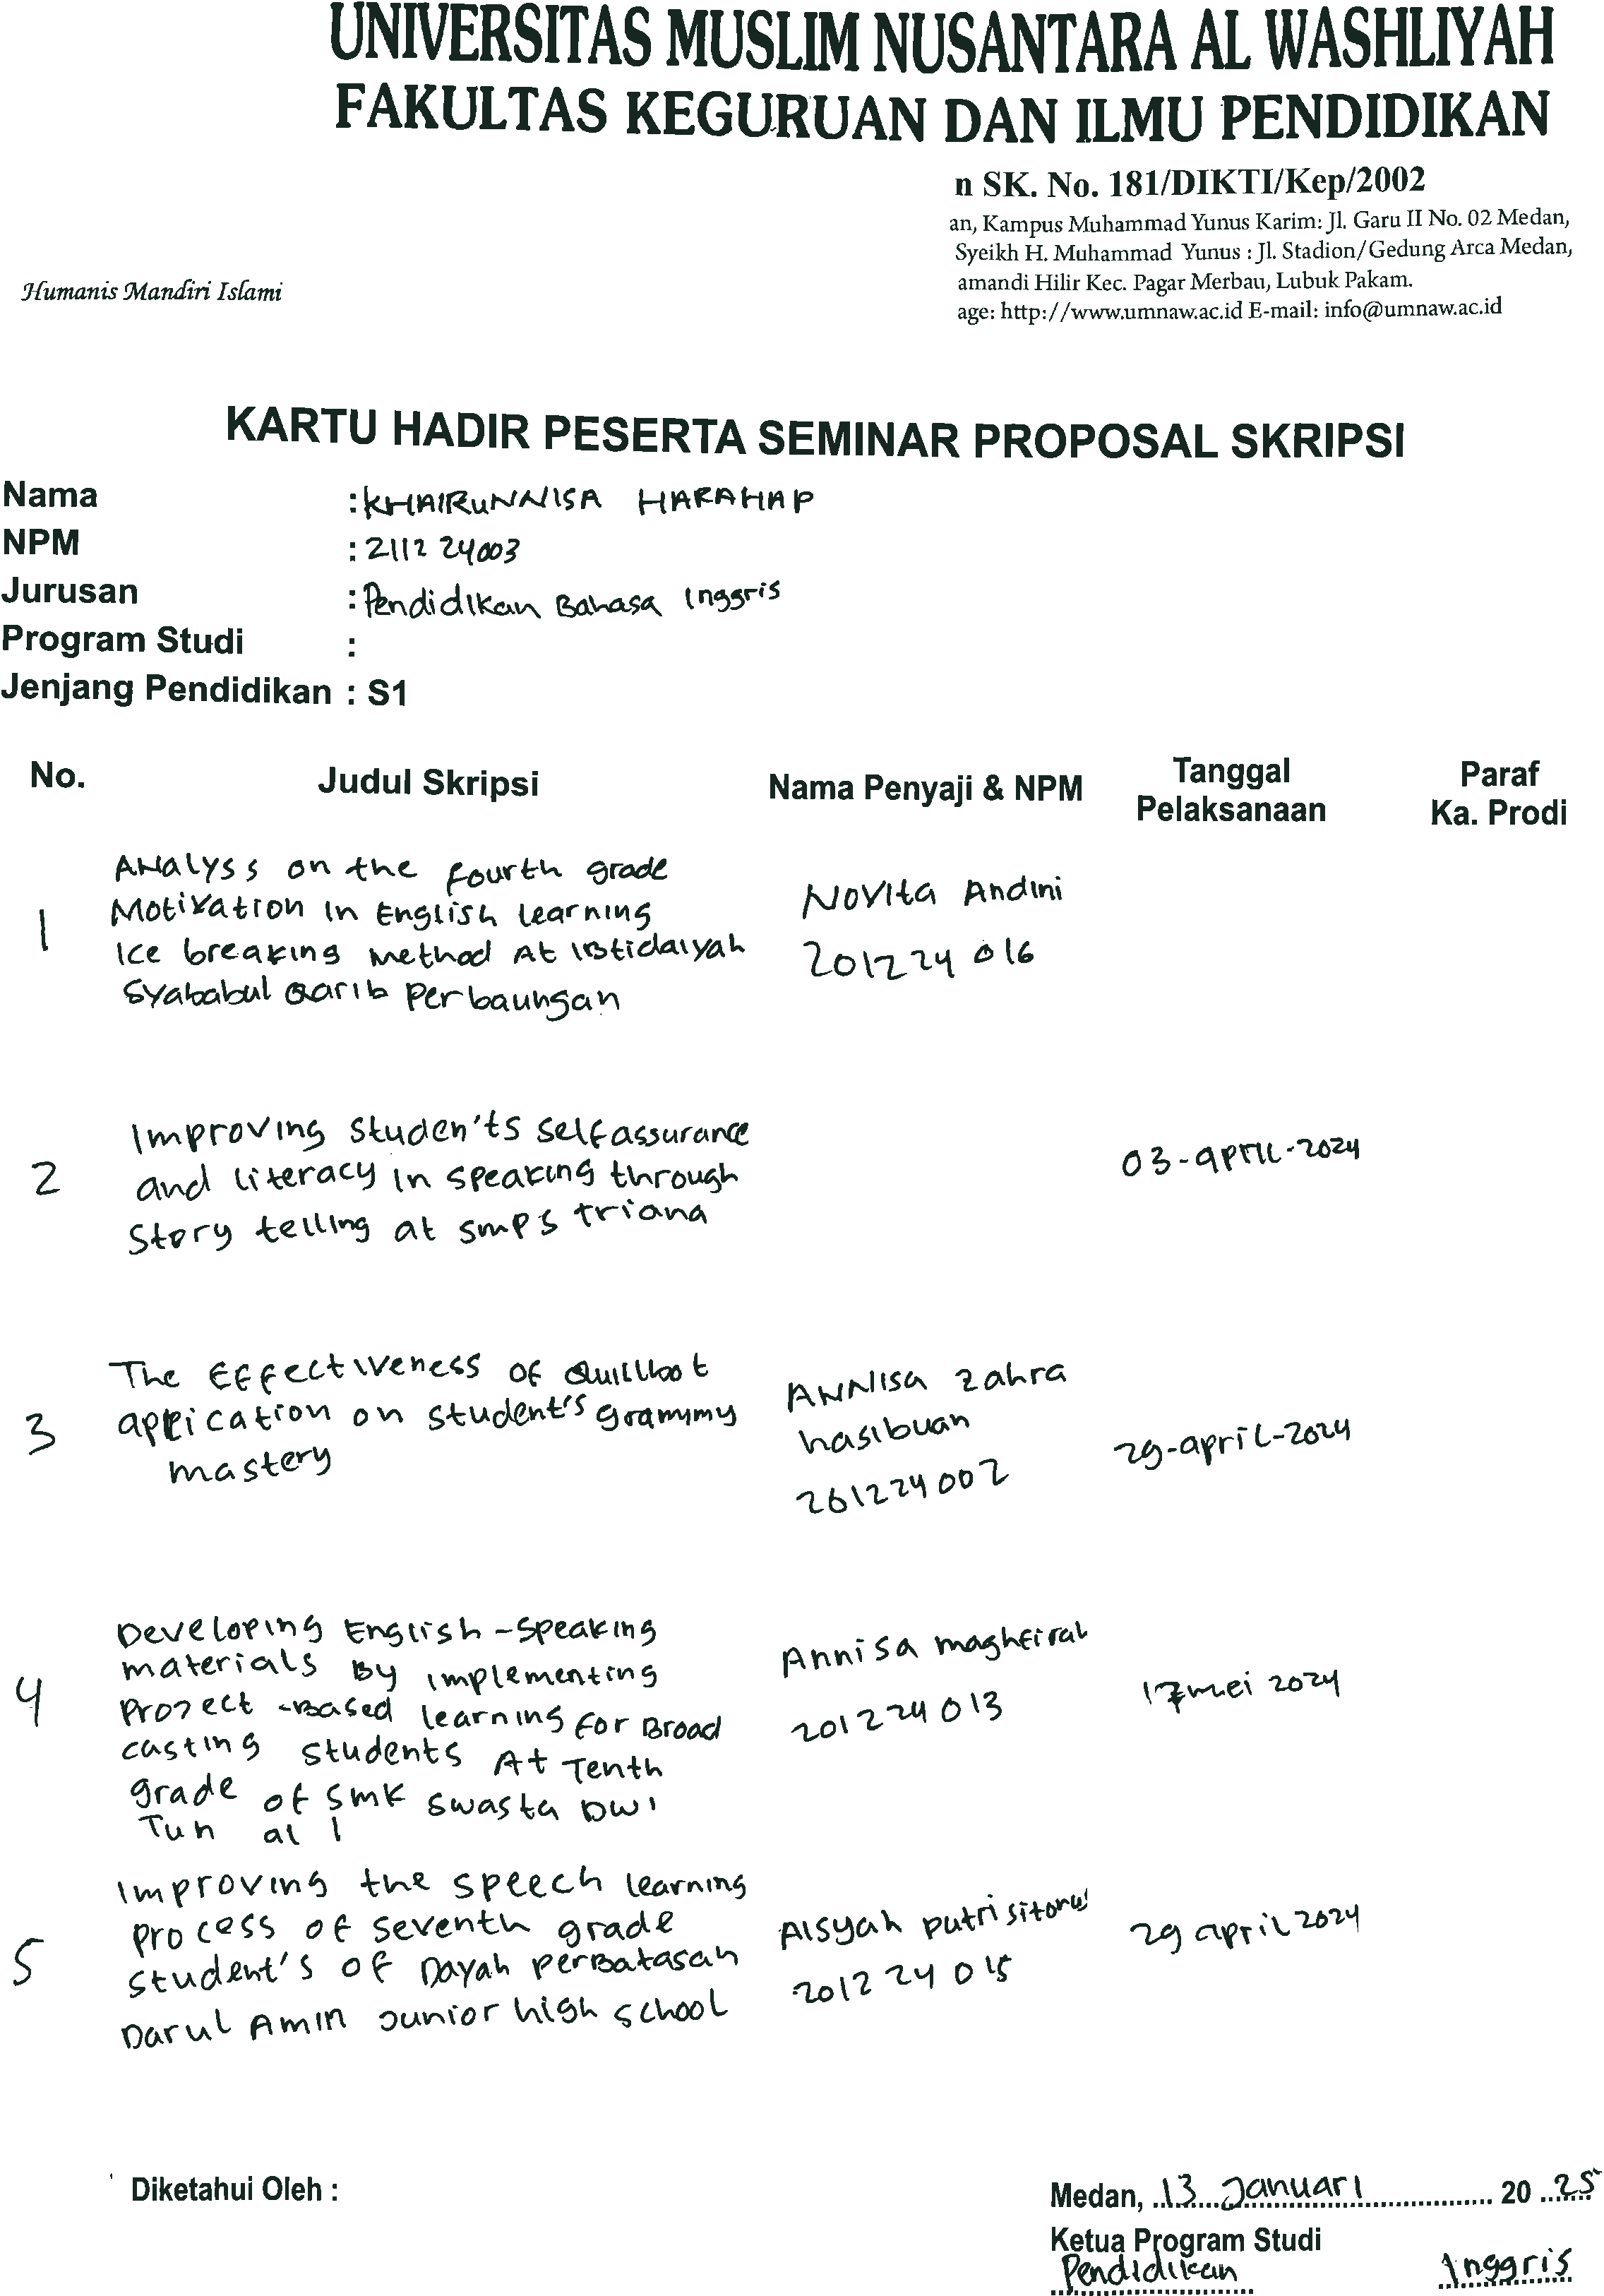 UNIVERSITAS MUSLIM NUSANTARA AL WASHLIYAH
FAKULTAS KEGURUAN DAN ILMU PENDIDIKAN
n SK. No. 181/DIKTI/Kep/2002
an, Kampus Muhammad Yunus Karim: Jl. Garu II No. 02 Medan,
Syeikh H. Muhammad Yunus : Jl. Stadion/Gedung Arca Medan,
amandi Hilir Kec. Pagar Merbau, Lubuk Pakam.
age: http://www.umnaw.ac.id E-mail: info@umnaw.ac.id
Humanis Mandiri Islami
KARTU HADIR PESERTA SEMINAR PROPOSAL SKRIPSI
Nama : KHAIRUNNISA HARAHAP
NPM : 2112 24003
Jurusan : Pendidikan Bahasa Inggris
Program Studi :
Jenjang Pendidikan : S1
No. Judul Skripsi Nama Penyaji & NPM Tanggal Pelaksanaan Paraf Ka. Prodi
1 Analyss on the fourth grade
Motivation in English learning
Ice breaking method At Ibtidaiyah
Syababul Qarib Perbaungan
Novita Andini
201224 016
2 Improving studen'ts selfassurance
and literacy in speaking through
story telling at smps triana
03-april-2024
3 The Effectiveness of Quillbot
application on student's grammy
mastery
Annisa zahra
hasibuan
201224002
29-april-2024
4 Developing English-speaking
materials By implementing
Project-Based learning for Broad
casting students At Tenth
grade of smk swasta Dwi
Tun al 1
Annisa maghfirah
201224 013
17 mei 2024
5 Improving the speech learning
process of seventh grade
student's of Dayah perbatasan
Darul Amin Junior high school
Aisyah putri sitorus
201224 015
29 april 2024
Diketahui Oleh :
Medan, 13 Januari 20 25
Ketua Program Studi
Pendidikan Inggris